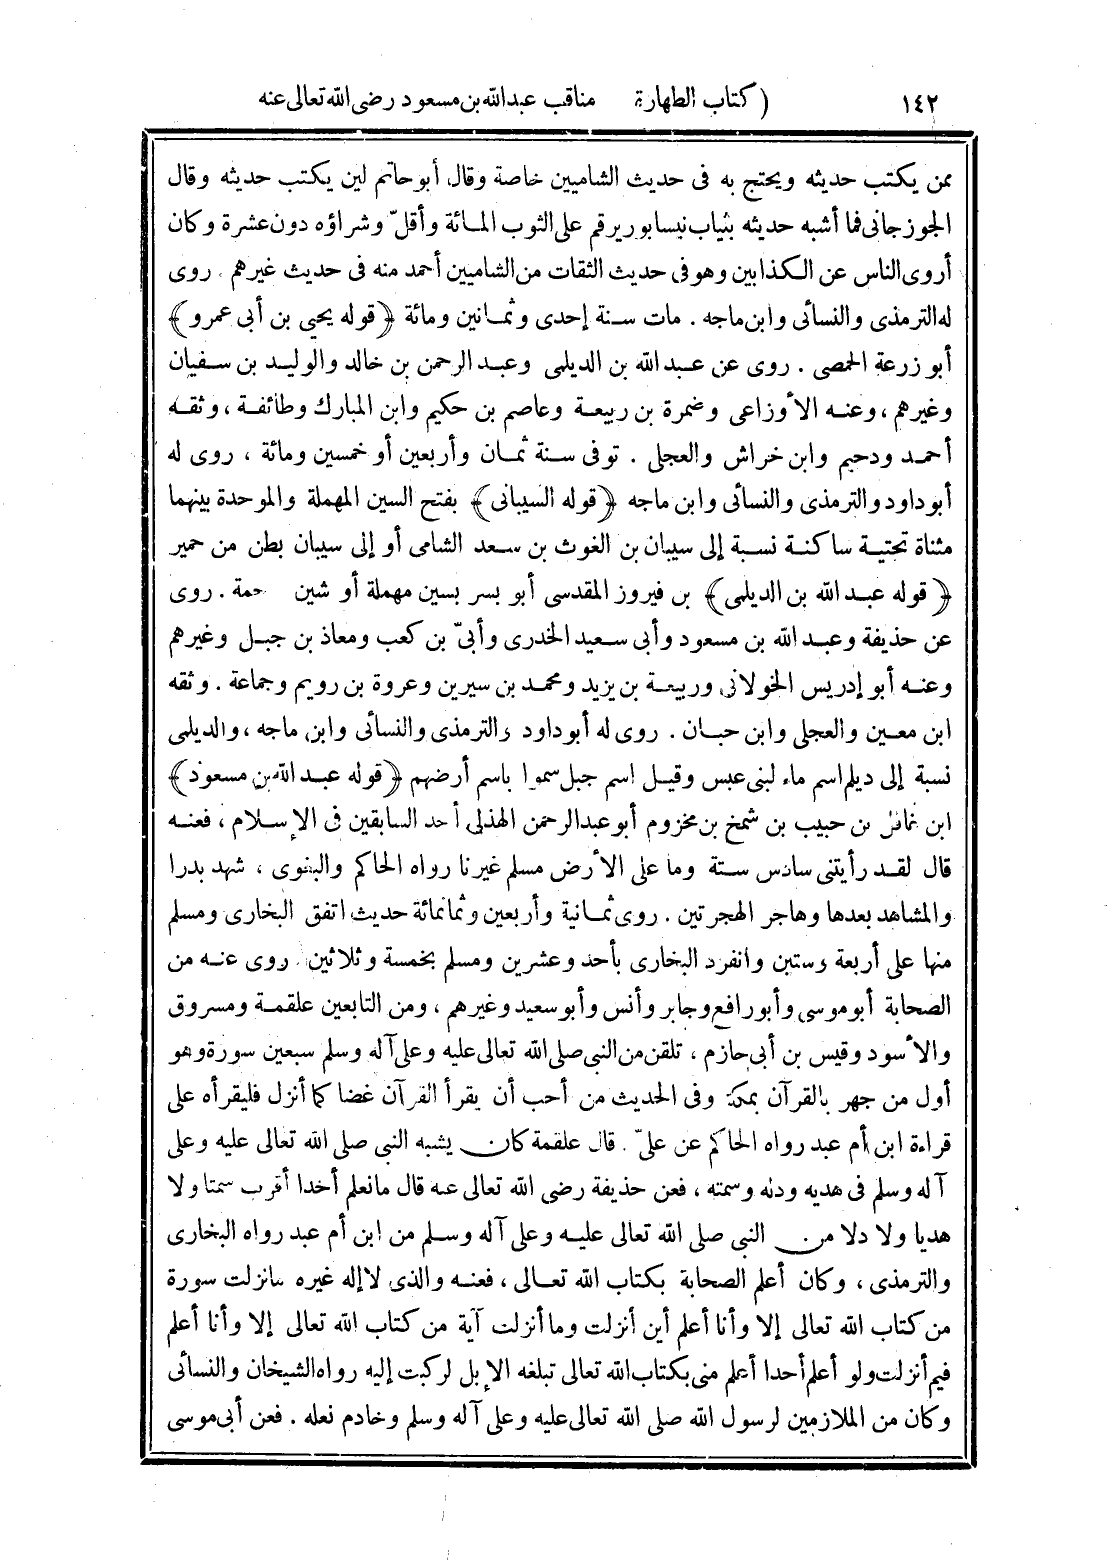 ١٤٢ ( كتاب الطهارة مناقب عبدالله بن مسعود رضى الله تعالى عنه
ممن يكتب حديثه ويحتج به فى حديث الشاميين خاصة وقال أبو حاتم لين يكتب حديثه وقال
الجوزجانى فما أشبه حديثه بثياب نيسابور يرقم على الثوب المائة وأقلّ وشراؤه دون عشرة وكان
أروى الناس عن الكذابين وهو فى حديث الثقات من الشاميين أحمد منه فى حديث غيرهم . روى
له الترمذى والنسائى وابن ماجه . مات سنة إحدى وثمانين ومائة ﴿قوله يحيى بن أبى عمرو﴾
أبو زرعة الحمصى . روى عن عبد الله بن الديلمى وعبد الرحمن بن خالد والوليد بن سفيان
وغيرهم ، وعنه الأوزاعى وضمرة بن ربيعة وعاصم بن حكيم وابن المبارك وطائفة ، وثقه
أحمد ودحيم وابن خراش والعجلى . توفى سنة ثمان وأربعين أو خمسين ومائة ، روى له
أبو داود والترمذى والنسائى وابن ماجه ﴿قوله السيبانى﴾ بفتح السين المهملة والموحدة بينهما
مثناة تحتية ساكنة نسبة إلى سيبان بن الغوث بن سعد الشامى أو إلى سيبان بطن من حمير
﴿قوله عبد الله بن الديلمى﴾ بن فيروز المقدسى أبو بسر بسين مهملة أو شين حمة . روى
عن حذيفة وعبد الله بن مسعود وأبى سعيد الخدرى وأبىّ بن كعب ومعاذ بن جبل وغيرهم
وعنه أبو إدريس الخولانى وربيعة بن يزيد ومحمد بن سيرين وعروة بن رويم وجماعة . وثقه
ابن معين والعجلى وابن حبان . روى له أبو داود والترمذى والنسائى وابن ماجه ، والديلمى
نسبة إلى ديلم اسم ماء لبنى عبس وقيل اسم جبل سموا باسم أرضهم ﴿قوله عبد الله بن مسعود﴾
ابن غافل بن حبيب بن شمخ بن مخزوم أبو عبد الرحمن الهذلى أحد السابقين فى الإسلام ، فعنه
قال لقد رأيتنى سادس ستة وما على الأرض مسلم غيرنا رواه الحاكم والبغوى ، شهد بدرا
والمشاهد بعدها وهاجر الهجرتين . روى ثمانية وأربعين وثمانمائة حديث اتفق البخارى ومسلم
منها على أربعة وستين وانفرد البخارى بأحد وعشرين ومسلم بخمسة وثلاثين . روى عنه من
الصحابة أبو موسى وأبو رافع وجابر وأنس وأبو سعيد وغيرهم ، ومن التابعين علقمة ومسروق
والأسود وقيس بن أبى حازم ، تلقن من النبى صلى الله تعالى عليه وعلى آله وسلم سبعين سورة وهو
أول من جهر بالقرآن بمكة وفى الحديث من أحب أن يقرأ القرآن غضا كما أنزل فليقرأه على
قراءة ابن أم عبد رواه الحاكم عن علىّ . قال علقمة كان يشبه النبى صلى الله تعالى عليه وعلى
آله وسلم فى هديه ودله وسمته ، فعن حذيفة رضى الله تعالى عنه قال مانعلم أحدا أقرب سمتا ولا
هديا ولا دلا من النبى صلى الله تعالى عليه وعلى آله وسلم من ابن أم عبد رواه البخارى
والترمذى ، وكان أعلم الصحابة بكتاب الله تعالى ، فعنه والذى لا إله غيره مانزلت سورة
من كتاب الله تعالى إلا وأنا أعلم أين أنزلت وما أنزلت آية من كتاب الله تعالى إلا وأنا أعلم
فيم أنزلت ولو أعلم أحدا أعلم منى بكتاب الله تعالى تبلغه الإبل لركبت إليه رواه الشيخان والنسائى
وكان من الملازمين لرسول الله صلى الله تعالى عليه وعلى آله وسلم وخادم نعله . فعن أبى موسى